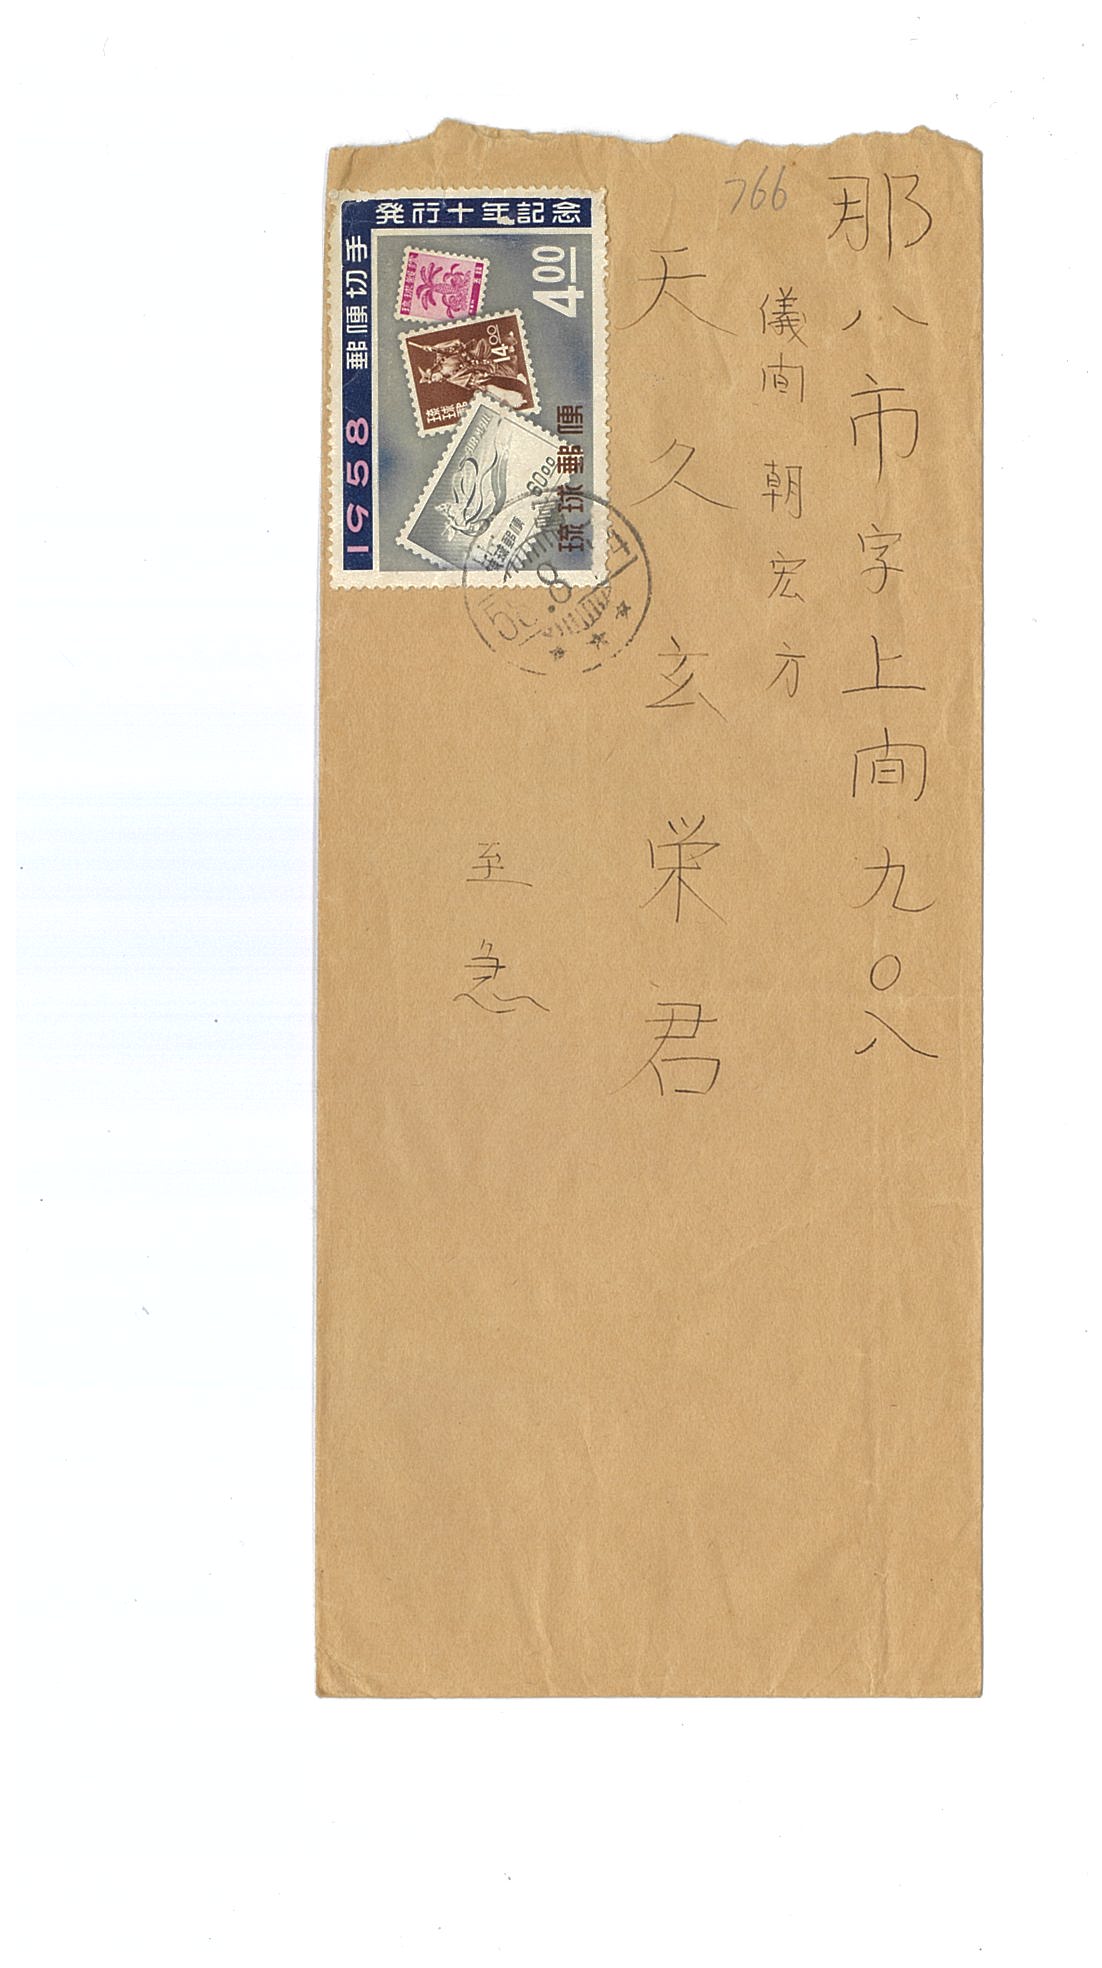 那八市字上间九〇八
766
儀间朝宏方
天久玄栄君
至急
発行十年記念
郵便切手
1958
4.00
琉球郵便
14.00
琉球郵
AIR MAIL
60.00
琉球郵便
58.8